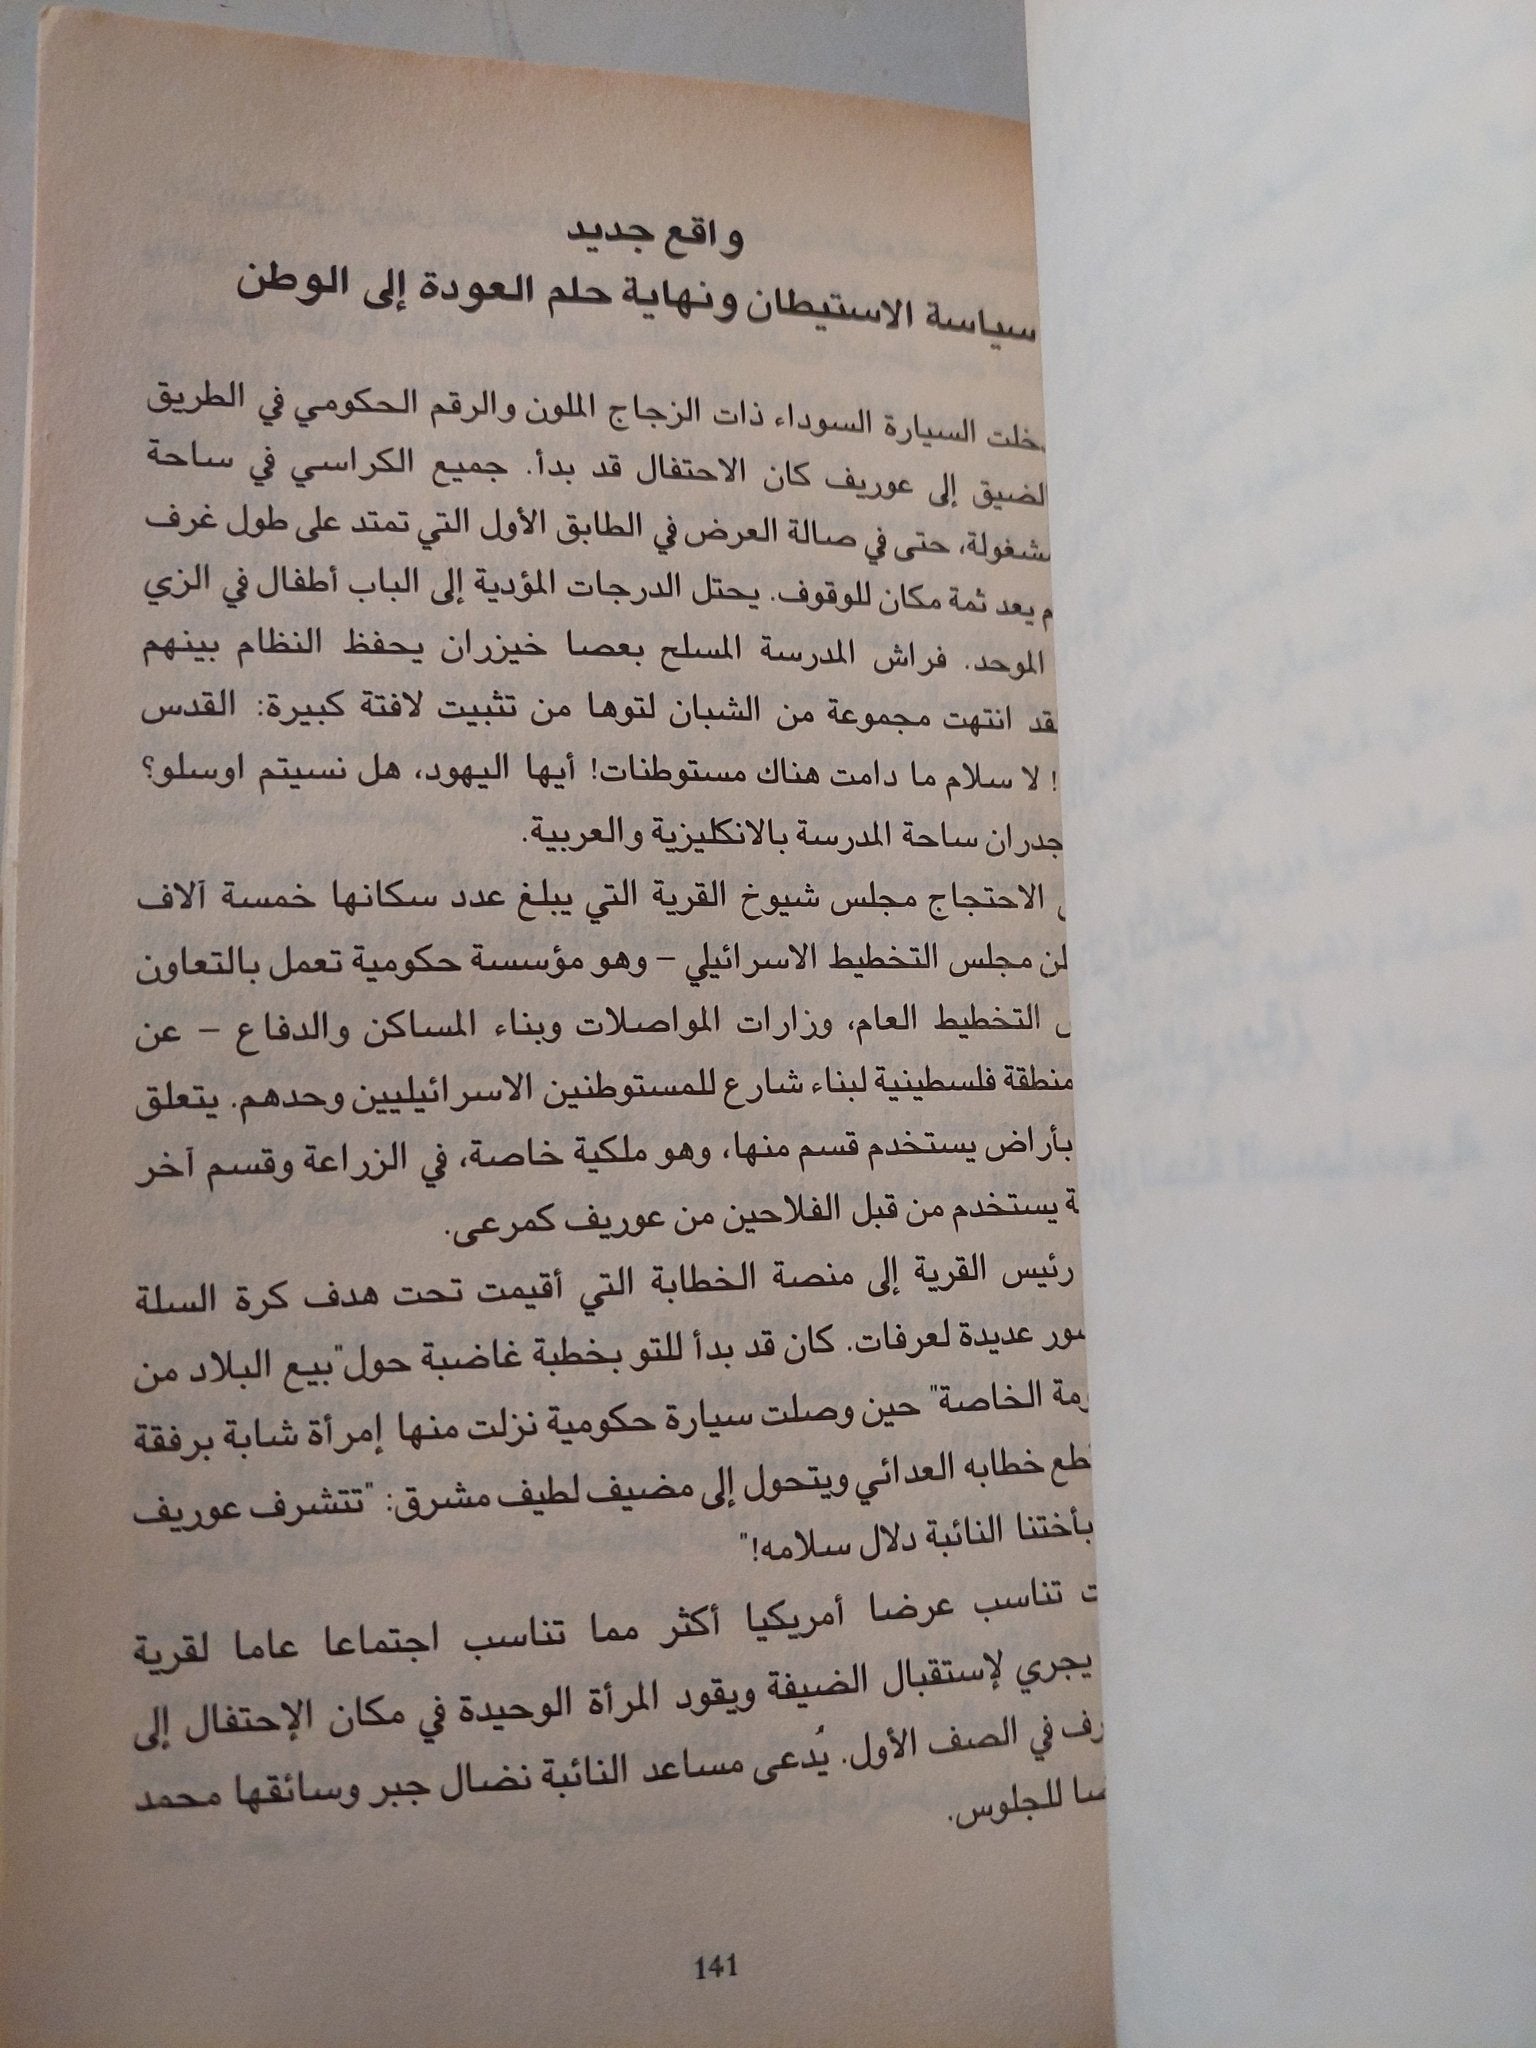 واقع جديد
سياسة الاستيطان ونهاية حلم العودة إلى الوطن
السيارة السوداء ذات الزجاج الملون والرقم الحكومي في الطريق
إلى عوريف كان الاحتفال قد بدأ. جميع الكراسي في ساحة
حتى في صالة العرض في الطابق الأول التي تمتد على طول غرف
يعد ثمة مكان للوقوف. يحتل الدرجات المؤدية إلى الباب أطفال في الزي
الموحد. فراش المدرسة المسلح بعصا خيزران يحفظ النظام بينهم
انتهت مجموعة من الشبان لتوها من تثبيت لافتة كبيرة: القدس
! لا سلام ما دامت هناك مستوطنات! أيها اليهود، هل نسيتم اوسلو؟
جدران ساحة المدرسة بالانكليزية والعربية.
الاحتجاج مجلس شيوخ القرية التي يبلغ عدد سكانها خمسة آلاف
مجلس التخطيط الاسرائيلي – وهو مؤسسة حكومية تعمل بالتعاون
التخطيط العام، وزارات المواصلات وبناء المساكن والدفاع – عن
منطقة فلسطينية لبناء شارع للمستوطنين الاسرائيليين وحدهم. يتعلق
بأراض يستخدم قسم منها، وهو ملكية خاصة، في الزراعة وقسم آخر
يستخدم من قبل الفلاحين من عوريف كمرعى.
رئيس القرية إلى منصة الخطابة التي أقيمت تحت هدف كرة السلة
عديدة لعرفات. كان قد بدأ للتو بخطبة غاضبة حول"بيع البلاد من
الخاصة" حين وصلت سيارة حكومية نزلت منها إمرأة شابة برفقة
خطابه العدائي ويتحول إلى مضيف لطيف مشرق: "تتشرف عوريف
بأختنا النائبة دلال سلامه!"
تناسب عرضا أمريكيا أكثر مما تناسب اجتماعا عاما لقرية
يجري لإستقبال الضيفة ويقود المرأة الوحيدة في مكان الإحتفال إلى
في الصف الأول. يُدعى مساعد النائبة نضال جبر وسائقها محمد
للجلوس.
141